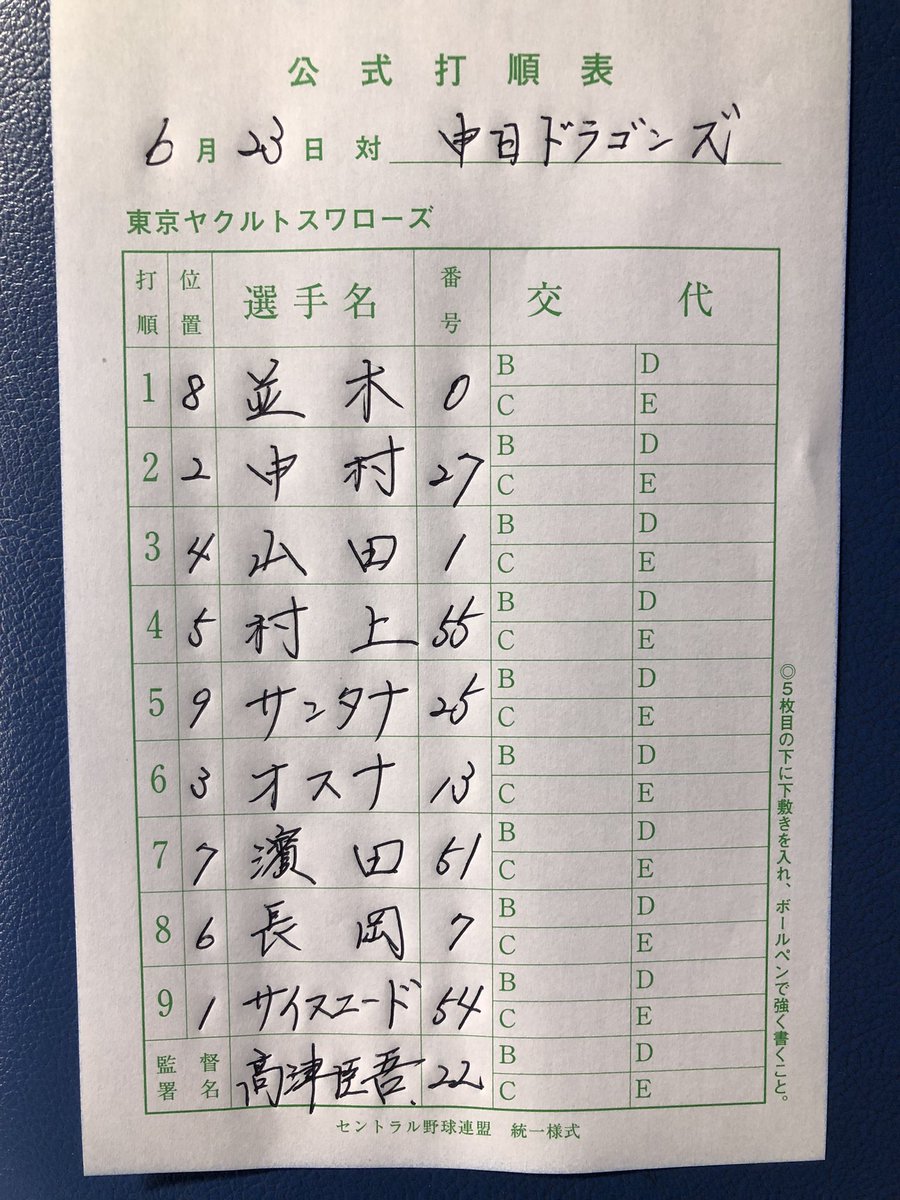 公式打順表
6月23日 対 中日ドラゴンズ
東京ヤクルトスワローズ
打順 位置 選手名 番号 交代
1 8 並木 0 B D
C E
2 2 中村 27 B D
C E
3 4 山田 1 B D
C E
4 5 村上 55 B D
C E
5 9 サンタナ 25 B D
C E
6 3 オスナ 13 B D
C E
7 7 濱田 51 B D
C E
8 6 長岡 7 B D
C E
9 1 サイスニード 54 B D
C E
監督署名 高津臣吾 22 B D
C E
セントラル野球連盟 統一様式
◎5枚目の下に下敷きを入れ、ボールペンで強く書くこと。